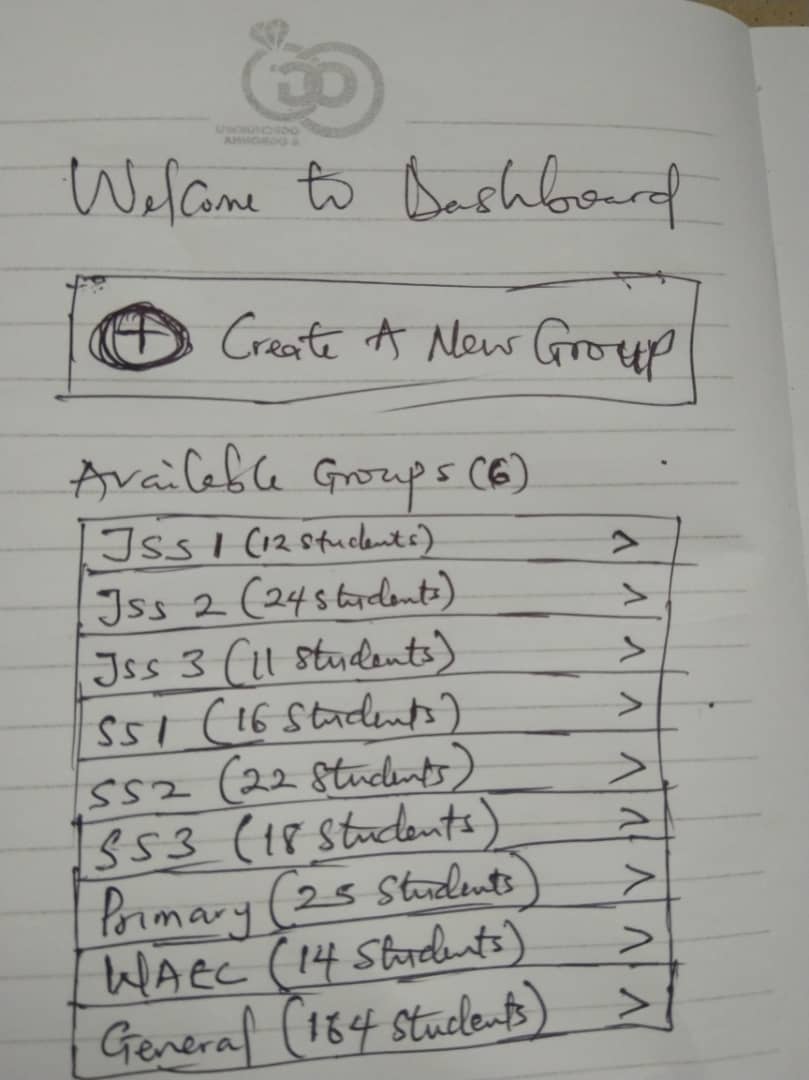 Welcome to Dashboard
+ Create A New Group
Available Groups (6)
JSS 1 (12 students) >
JSS 2 (24 students) >
JSS 3 (11 students) >
SS1 (16 Students) >
SS2 (22 Students) >
SS3 (18 Students) >
Primary (25 Students) >
WAEC (14 Students) >
General (164 Students) >